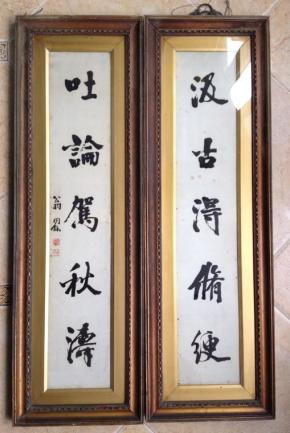 汲古得脩綆
吐論駕秋濤
翁同龢